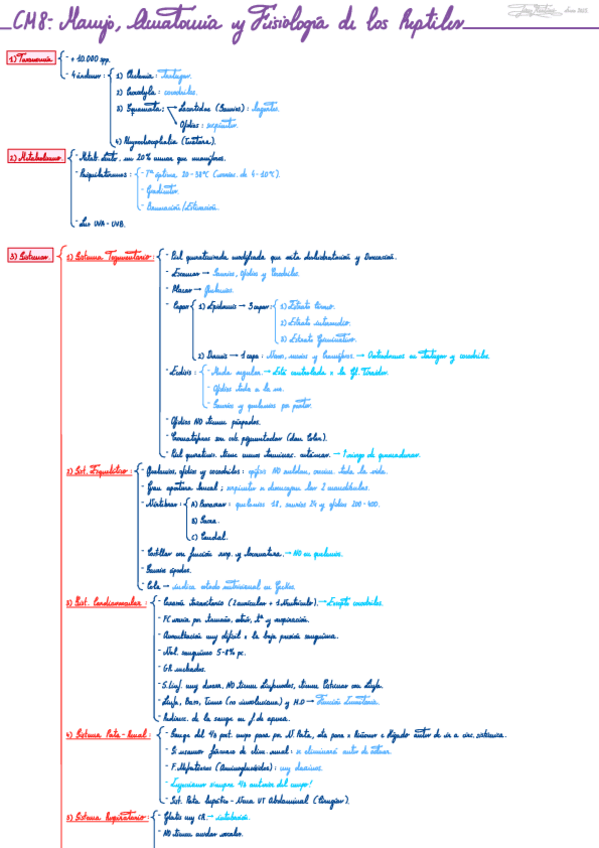 CM8: Manejo, Anatomía y Fisiología de los Reptiles
1) Taxonomía
- + 10.000 spp.
- 4 órdenes:
1) Chelonia: Tortugas.
2) Crocodyla: cocodrilos.
3) Squamata: → Lacertidos (Saurios): lagartos.
→ Ofidios: serpientes.
4) Rhynchocephalia (Tuatara).
2) Metabolismo
- Metab. lento, un 20% menor que mamíferos.
- Poiquilotermos:
- Tª óptima 20-38ºC (unos de 4-10ºC).
- Gradientes.
- Brumación/Estivación.
- Luz UVA-UVB.
3) Sistemas
1) Sistema Tegumentario:
- Piel queratinizada modificada que evita deshidratación y
- Escamas → Saurios, ofidios y Cocodrilos.
- Placas → Quelonios.
- Capas
1) Epidermis → 3 capas:
1) Estrato córneo.
2) Estrato intermedio.
3) Estrato Germinativo.
2) Dermis → 1 capa: Nervios, vasos y Cromatóforos. → Osteodermos en Tortugas y cocodrilos.
- Ecdisis:
- Muda regular. → Está controlada x la Gl. Tiroides.
- Ofidios toda a la vez.
- Saurios y quelonios por partes.
- Ofidios NO tienen párpados.
- Cromatóforos son cels pigmentadas (dan Color).
- Piel queratiniz. tiene menos termin. →
2) Sist. Esquelético:
- Quelonios, ofidios y cocodrilos: epífisis NO sueldan, crecen toda la vida.
- Gran apertura bucal: serpientes
- Vértebras:
A) Presacras: quelonios 18, saurios 24 y ofidios 200-400.
B) Sacra.
C) Caudal.
- Costillas con función resp. y locomotora. → NO en quelonios.
- Saurios ápodos.
- Cola → indica estado nutricional en Geckos.
3) Sist. Cardiovascular:
- Corazón tricavitario (2 aurículas + 1 Ventrículo). → Excepto cocodrilos.
- FC varía por tamaño, estrés, tª y respiración.
- Auscultación muy difícil x la baja presión sanguínea.
- Vol. sanguíneo 5-8% pc.
- GR nucleados.
- S. linf. muy desarr, NO tienen Linfonodos, tienen Cisternas con Linfa.
- Linfa, Bazo, Timo (no involuciona) y M.O → Función Inmunitaria.
- Redirecc. de la sangre en f de apnea.
4) Sistema Porta-Renal:
- Sangre del 1/2 post. cuerpo pasa por V. Porta, ésta pasa x Riñones e Hígado antes de ir a circ. sistémica.
- Si usamos fármacos de elim. renal: se eliminará antes de actuar.
- F. Nefrotóxicos (Aminoglucósidos): muy dañinos.
- Inyecciones siempre 1/2 anterior del cuerpo!
- Sist. Porta hepático - Vena VT Abdominal (Cirugías).
5) Sistema Respiratorio:
- Glotis muy CR. → intubación.
- NO tienen cuerdas vocales.